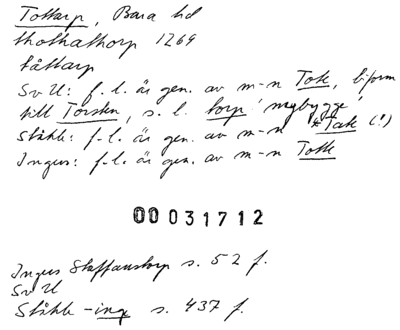 Tottarp, Bara hd
thothathorp 1269
tåttarp
Sv U: f.l. är gen. av m-n Tote, biform
till Torsten, s.l. torp 'nybygge'
Ståhle: f.l. är gen. av m-n *Tate (!)
Ingers: f.l. är gen. av m-n Totte
00031712
Ingers Staffanstorp s. 52 f.
Sv U
Ståhle -inge s. 437 f.